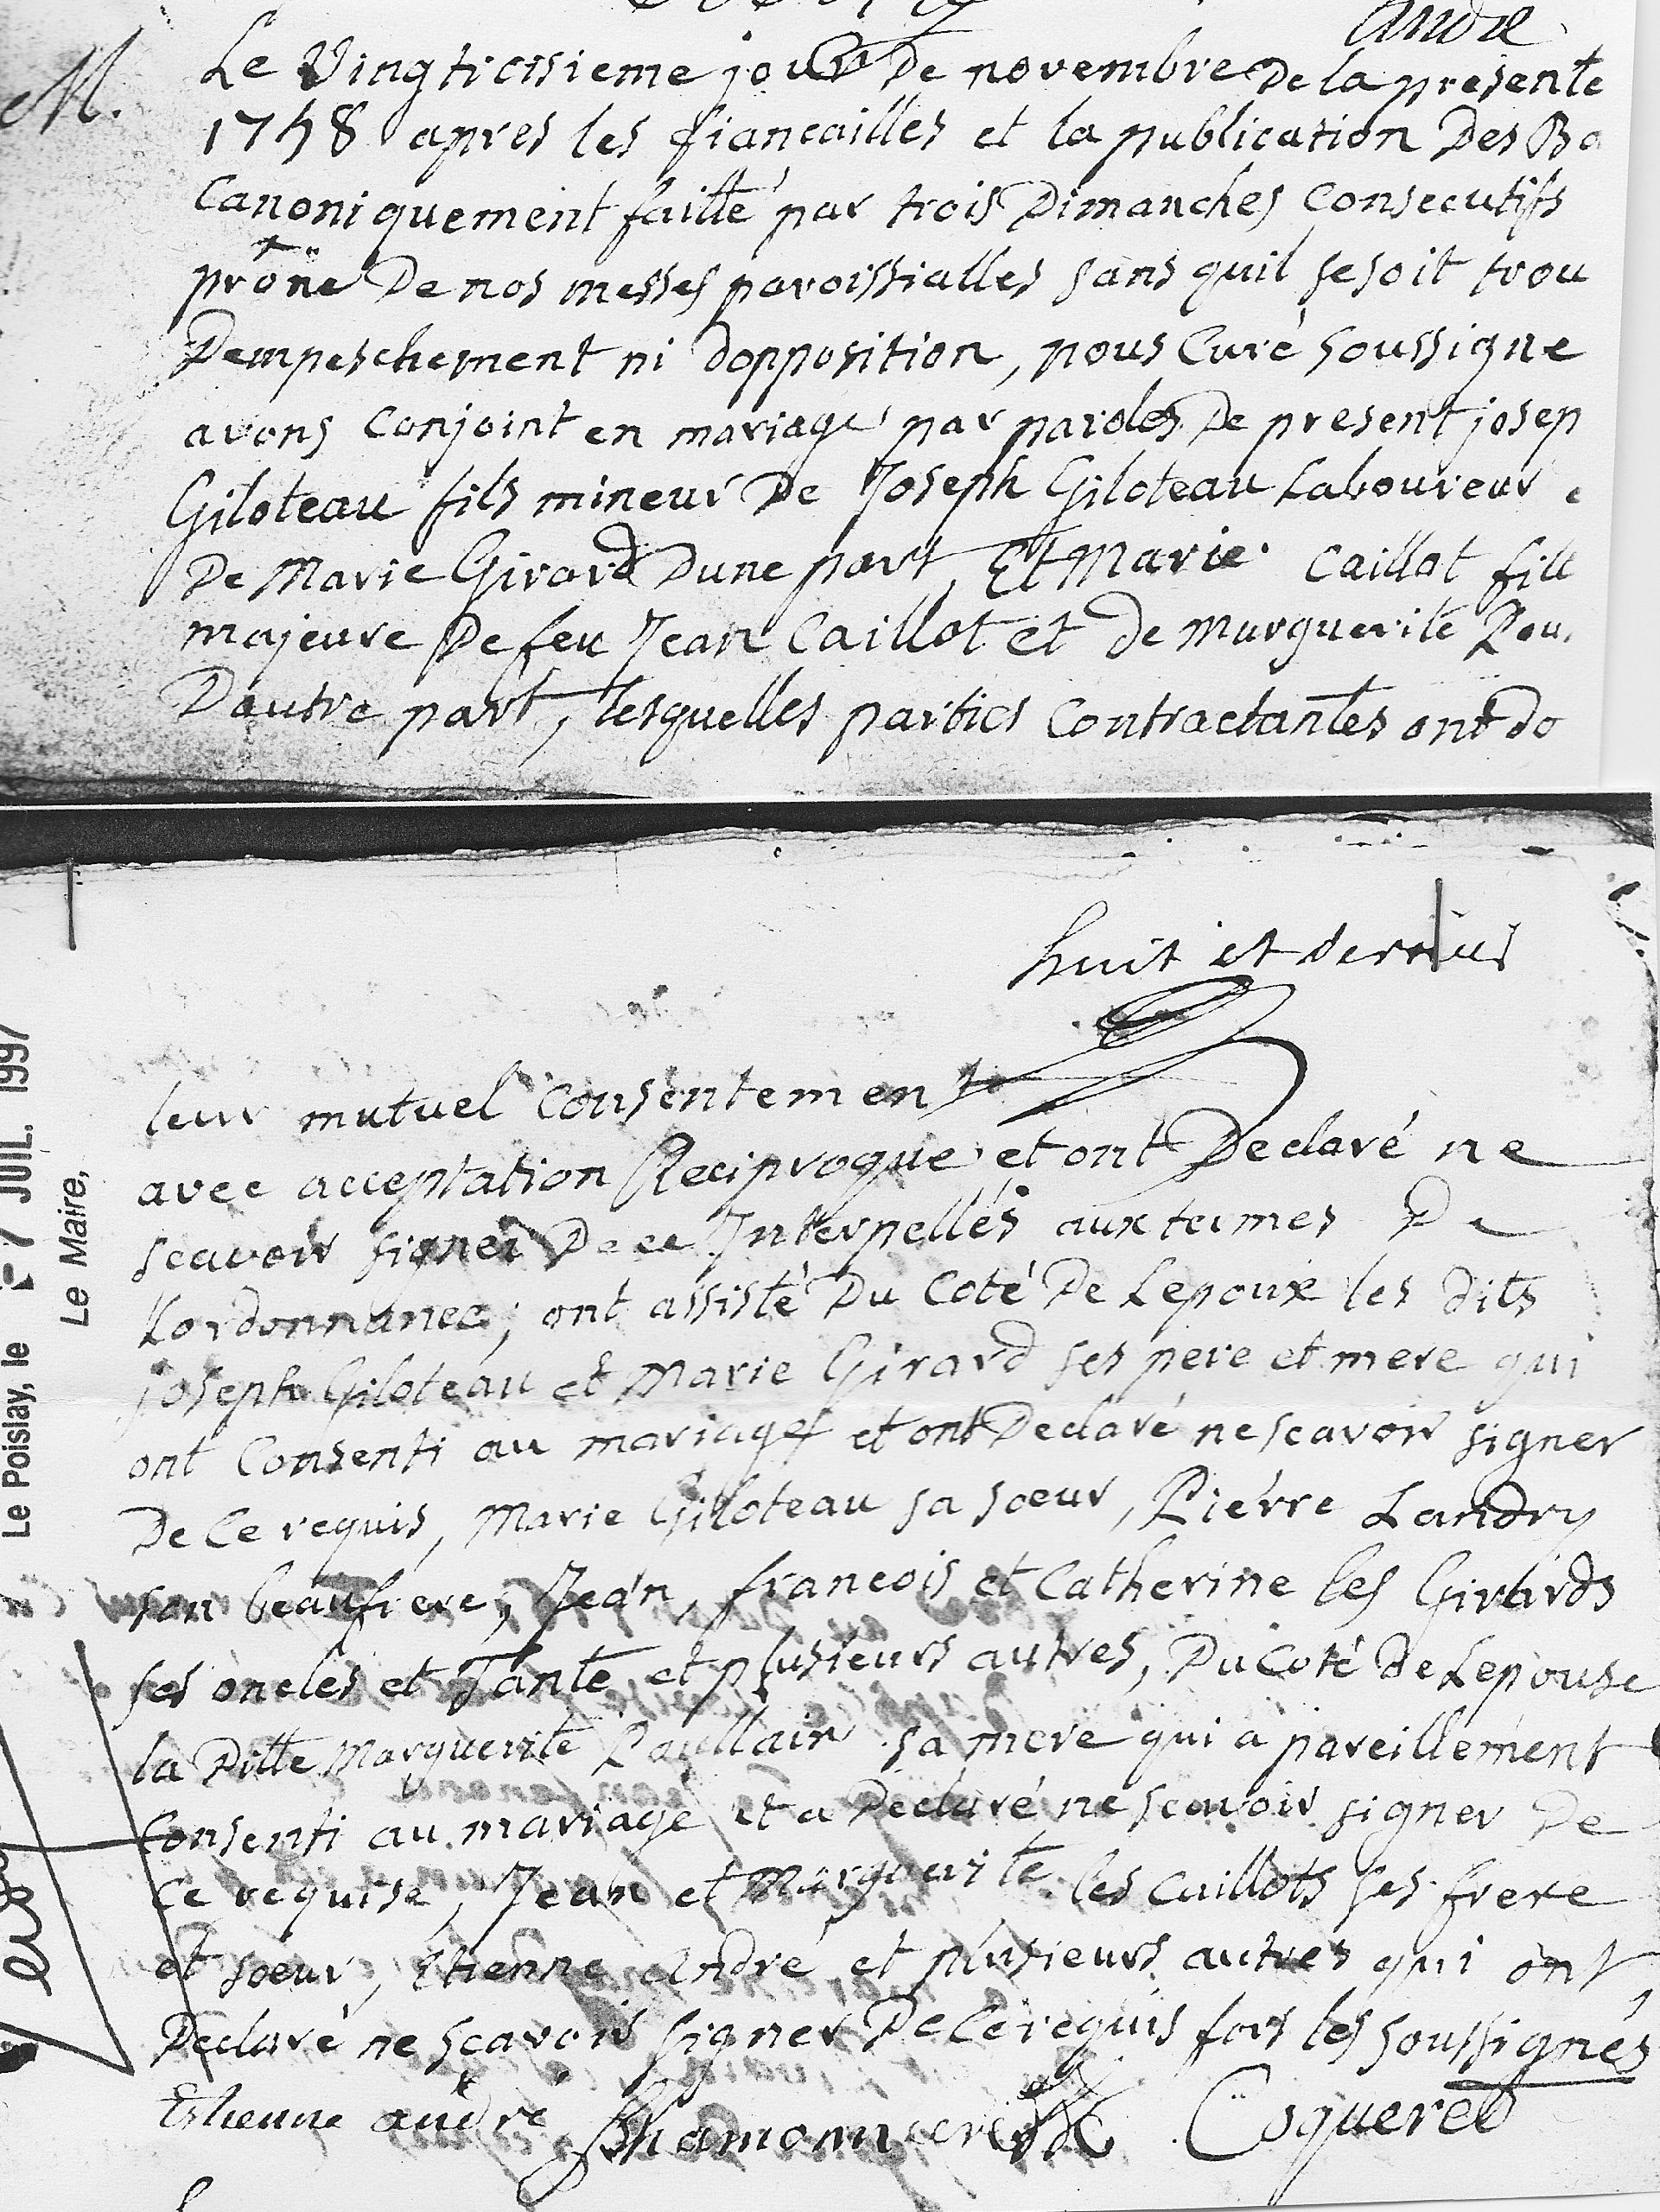 André
M.
Le Vingtroisieme jour De novembre De la presente
1758 apres les fiancailles et la publication Des Ba
Canoniquement faitte par trois Dimanches Consecutifs
prône De nos messes paroissialles sans quil se soit trou
Dempeschement ni dopposition, nous Curé soussigne
avons Conjoint en mariage par paroles De present josep
Giloteau fils mineur De Joseph Giloteau Laboureur e
De Marie Girard Dune part, Et Marie Caillot fill
majeure De feu Jean Caillot et de Marguerite Pou
Dautre part, lesquelles parties Contractantes ont do
huit et dernier
leur mutuel Consentement
avec acceptation Reciproque et ont Declaré ne
scavoir signer De ce Interpellés aux termes De
Lordonnance; ont assisté Du Coté De Lepoux les dits
joseph Giloteau et Marie Girard ses pere et mere qui
ont Consenti au mariage et ont Declaré ne scavoir signer
De Ce requis, Marie Giloteau sa soeur, Pierre Landry
son beaufrere, Jean, francois et Catherine les Girards
ses oncles et Tante et plusieurs autres, Du Coté de Lepouse
la Ditte Marguerite Poullain sa mere qui a pareillement
Consenti au mariage et a Declaré ne scavoir signer De
Ce requise, Jean et Marguerite les Caillots ses frere
et soeur, Etienne André et plusieurs autres qui ont
Declaré ne sçavoir signer De Ce requis fors les soussignés
Estienne andré Coquered
Le Poislay, le - 7 JUIL. 1997
Le Maire,